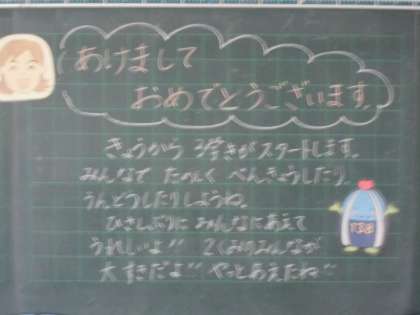 あけまして
おめでとうございます。
きょうから 3学きがスタートします。
みんなで たのしく べんきょうしたり、
うんどうしたりしようね。
ひさしぶりに みんなにあえて
うれしいよ!! 2くみのみんなが
大すきだよ!! やっとあえたね!!
138